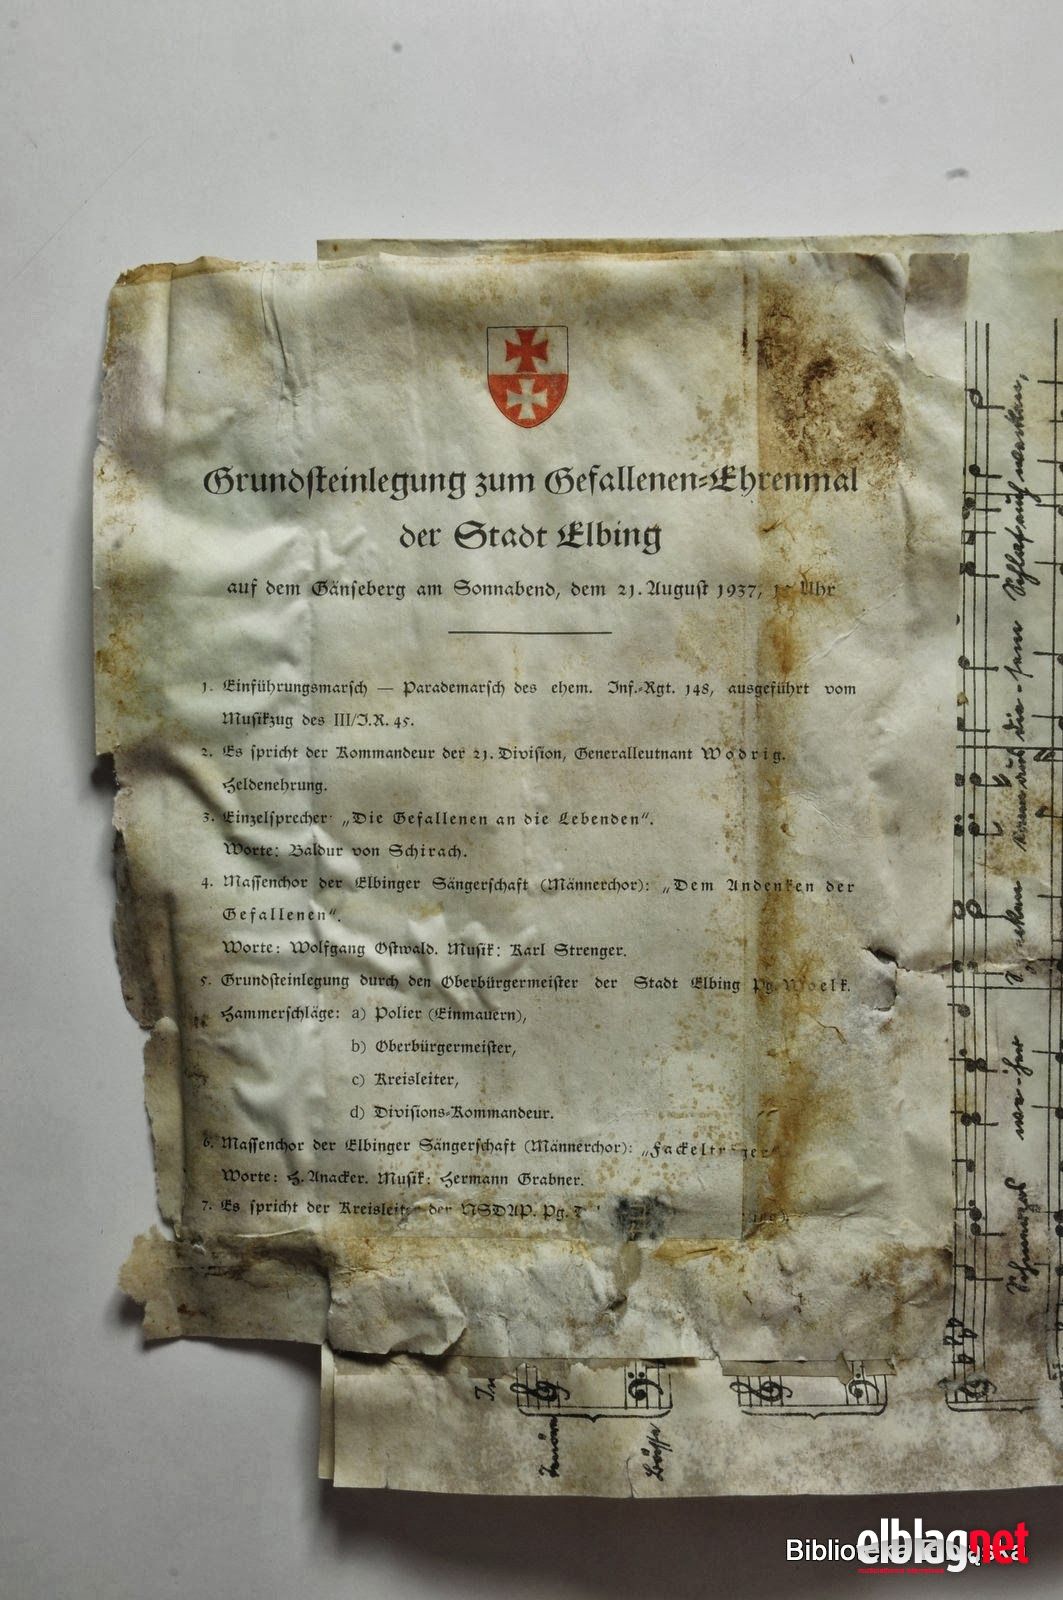 Grundsteinlegung zum Gefallenen-Ehrenmal
der Stadt Elbing
auf dem Gänseberg am Sonnabend, dem 21. August 1937, Uhr
1. Einführungsmarsch — Parademarsch des ehem. Inf.-Rgt. 148, ausgeführt vom
Musikzug des III/I.R. 45.
2. Es spricht der Kommandeur der 21. Division, Generalleutnant Wodrig.
Heldenehrung.
3. Einzelsprecher: „Die Gefallenen an die Lebenden“.
Worte: Baldur von Schirach.
4. Massenchor der Elbinger Sängerschaft (Männerchor): „Dem Andenken der
Gefallenen“.
Worte: Wolfgang Ostwald. Musik: Karl Strenger.
5. Grundsteinlegung durch den Oberbürgermeister der Stadt Elbing Pg. Woelk.
Hammerschläge: a) Polier (Einmauern),
b) Oberbürgermeister,
c) Kreisleiter,
d) Divisions-Kommandeur.
6. Massenchor der Elbinger Sängerschaft (Männerchor): „Fackelträger“
Worte: H. Anacker. Musik: Hermann Grabner.
7. Es spricht der Kreisleiter der NSDAP. Pg.
Schlaf auch
Tenöre
Bässe
Biblioteka
elblagnet